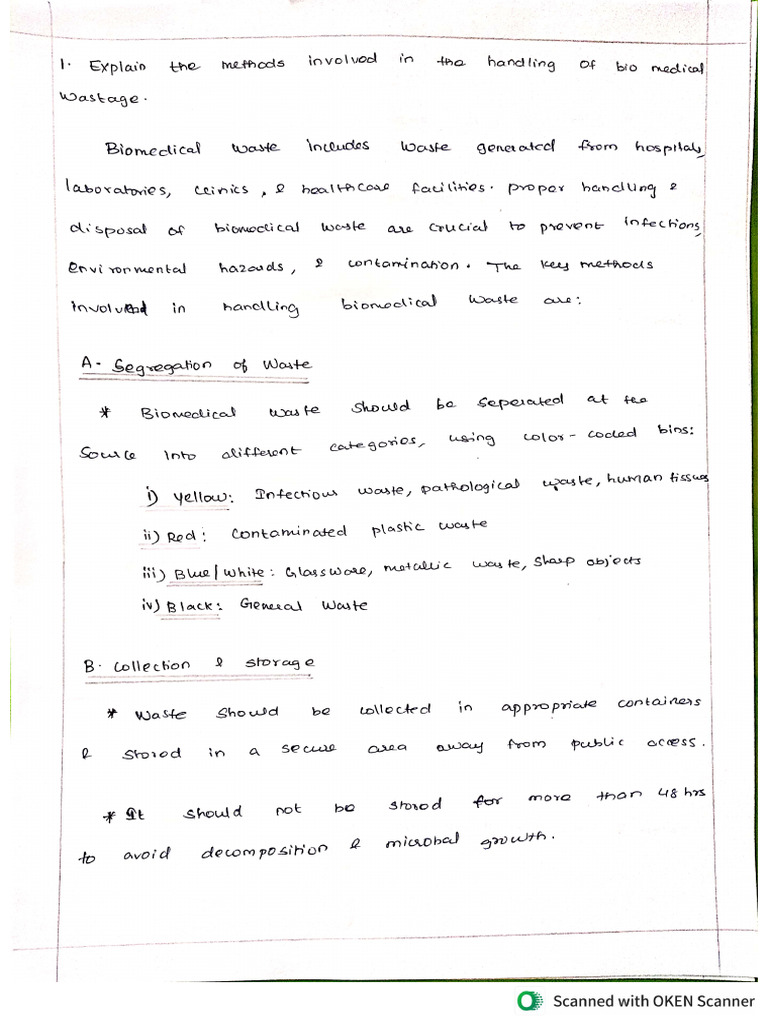 1. Explain the methods involved in the handling of bio medical
Wastage.
Biomedical waste includes waste generated from hospitals,
laboratories, clinics, & healthcare facilities. proper handling &
disposal of biomedical waste are crucial to prevent infections,
environmental hazards, & contamination. The key methods
involved in handling biomedical waste are:
A. Segregation of Waste
* Biomedical waste should be seperated at the
Source into different categories, using color-coded bins:
i) Yellow: Infectious waste, pathological waste, human tissues
ii) Red: Contaminated plastic waste
iii) Blue/White: Glassware, metallic waste, sharp objects
iv) Black: General Waste
B. Collection & storage
* Waste should be collected in appropriate containers
& stored in a secure area away from public access.
* It should not be stored for more than 48 hrs
to avoid decomposition & microbal growth.
Scanned with OKEN Scanner